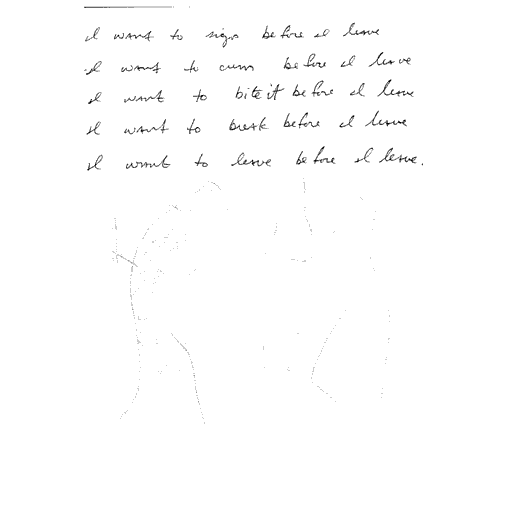 I want to sign before I leave
I want to cum before I leave
I want to bite it before I leave
I want to break before I leave
I want to leave before I leave.